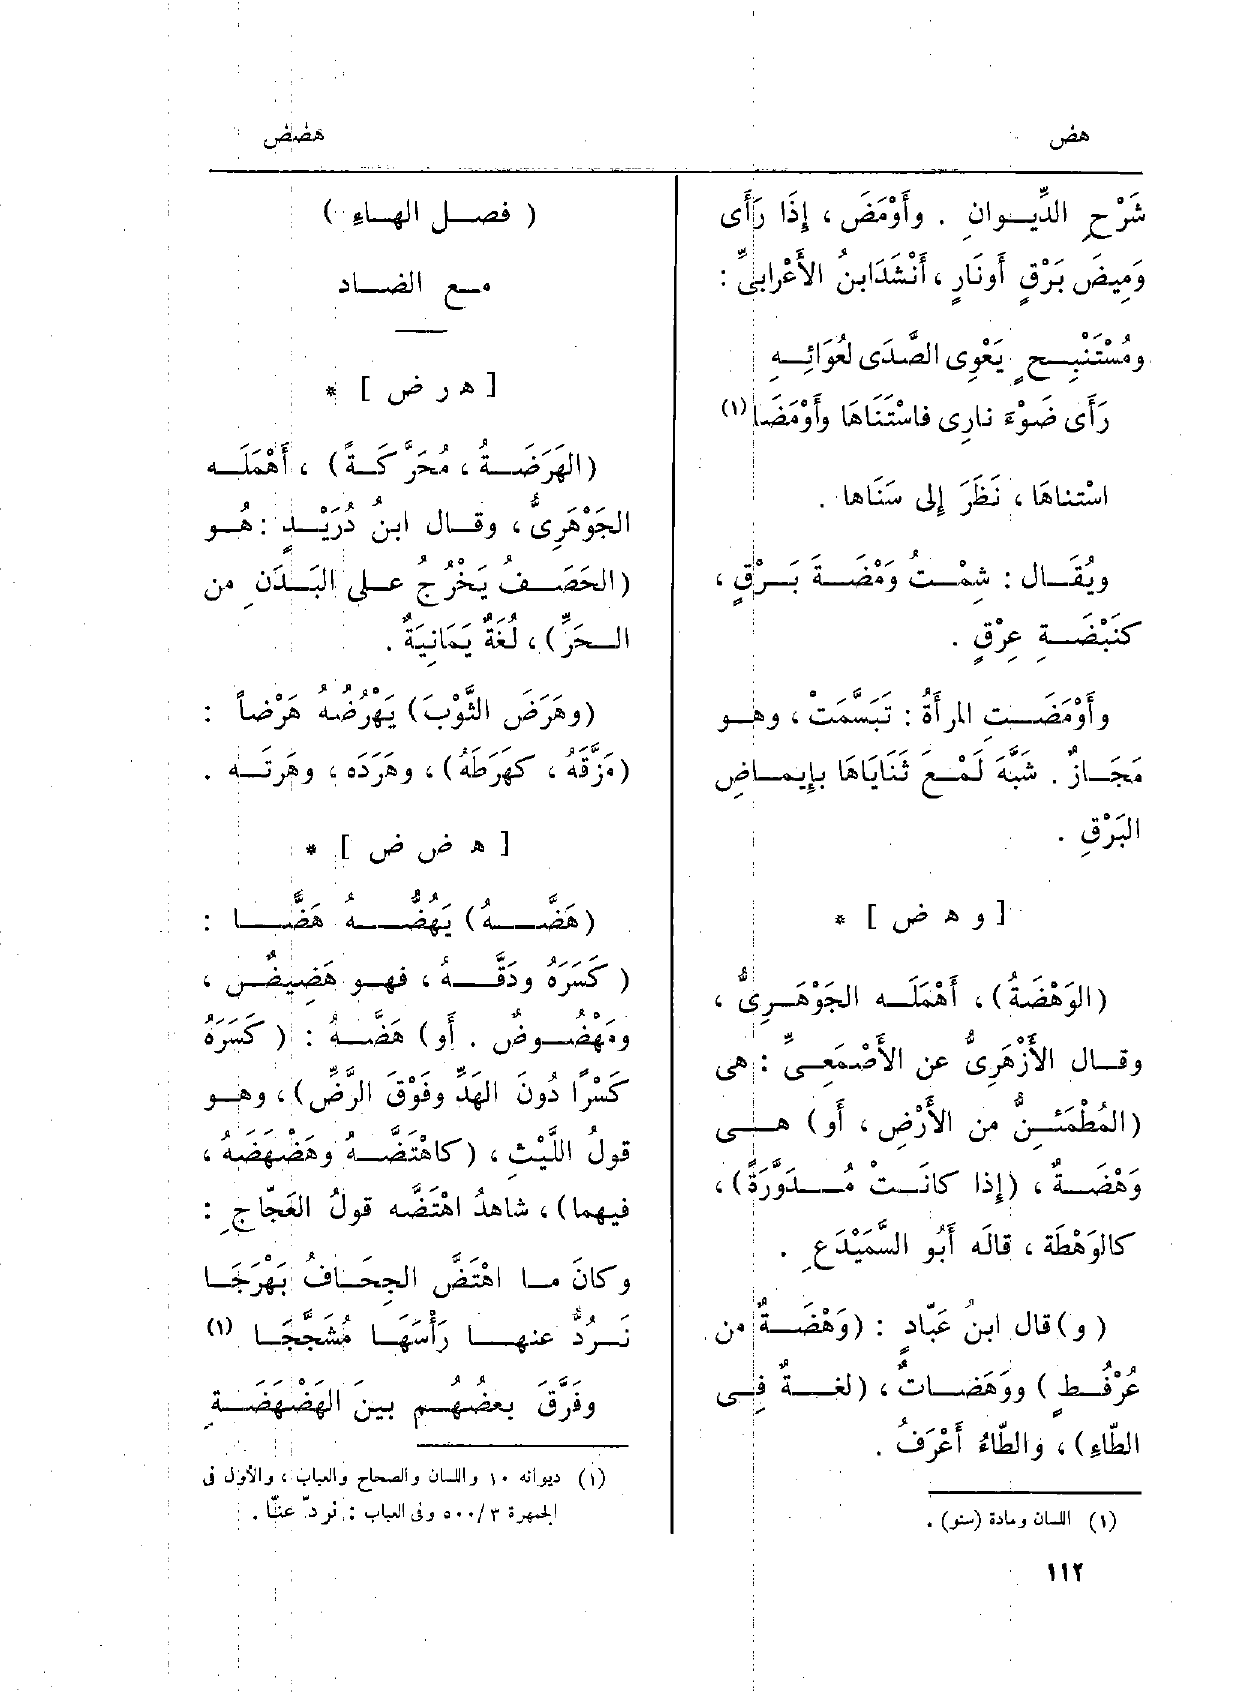 هض
هضض
شَرْحِ الدِّيوانِ . وأَوْمَضَ ، إِذَا رَأَى
وَمِيضَ بَرْقٍ أَونَارٍ ، أَنْشَدَابنُ الأَعْرابىِّ :
ومُسْتَنْبِحٍ يَعْوِى الصَّدَى لعُوَائِهِ
رَأَى ضَوْءَ نارِى فاسْتَنَاهَا وأَوْمَضَا (١)
استناهَا ، نَظَرَ إِلى سَنَاها .
ويُقَال : شِمْتُ وَمْضَةَ بَرْقٍ ،
كنَبْضَةِ عِرْقٍ .
وأَوْمَضَتِ المرأَةُ : تَبَسَّمَتْ ، وهو
مَجَازٌ . شَبَّهَ لَمْعَ ثَنَايَاهَا بإِيماضِ
البَرْقِ .
[ و هـ ض ] *
(الوَهْضَةُ) ، أَهْمَلَه الجَوْهَرِىُّ ،
وقال الأَزْهَرِىُّ عن الأَصْمَعِىِّ : هى
(المُطْمَئِنُّ من الأَرْضِ ، أَو) هى
وَهْضَةٌ ، (إِذا كانَتْ مُدَوَّرَةً) ،
كالوَهْطَة ، قالَه أَبُو السَّمَيْدَعِ .
( و) قال ابنُ عَبّادٍ : (وَهْضَةٌ من
عُرْفُطٍ ) ووَهَضاتٌ ، (لغةٌ فِى
الطّاءِ) ، والطّاءُ أَعْرَفُ .
(١) اللسان ومادة (سنو) .
( فصل الهاء )
مع الضاد
[ هـ ر ض ] *
(الهَرَضَةُ ، مُحَرَّكَةً) ، أَهْمَلَه
الجَوْهَرِىُّ ، وقال ابنُ دُرَيْدٍ : هُو
(الحَصَفُ يَخْرُجُ على البَدَنِ من
الحَرِّ) ، لُغَةٌ يَمَانِيَةٌ .
(وهَرَضَ الثَّوْبَ) يَهْرُضُهُ هَرْضاً :
(مَزَّقَهُ ، كهَرَطَهُ) ، وهَرَدَه ، وهَرَتَه .
[ هـ ض ض ] *
(هَضَّهُ) يَهُضُّهُ هَضًّا :
( كَسَرَهُ ودَقَّهُ ، فهو هَضِيضٌ ،
ومَهْضُوضٌ . أَو) هَضَّهُ : ( كَسَرَهُ
كَسْرًا دُونَ الهَدِّ وفَوْقَ الرَّضِّ) ، وهو
قولُ اللَّيْثِ ، (كاهْتَضَّهُ وهَضْهَضَهُ ،
فيهما) ، شاهدُ اهْتَضَّه قولُ العَجّاجِ :
وكانَ ما اهْتَضَّ الجِحَافُ بَهْرَجَا
نَرُدُّ عنها رَأْسَهَا مُشَجَّجَا (١)
وفَرَّقَ بعضُهُم بينَ الهَضْهَضَةِ
(١) ديوانه ١٠ واللسان والصحاح والعباب ، والأول فى
الجمهرة ٥٠٠/٣ وفى العباب : نرد عنّا .
١١٢